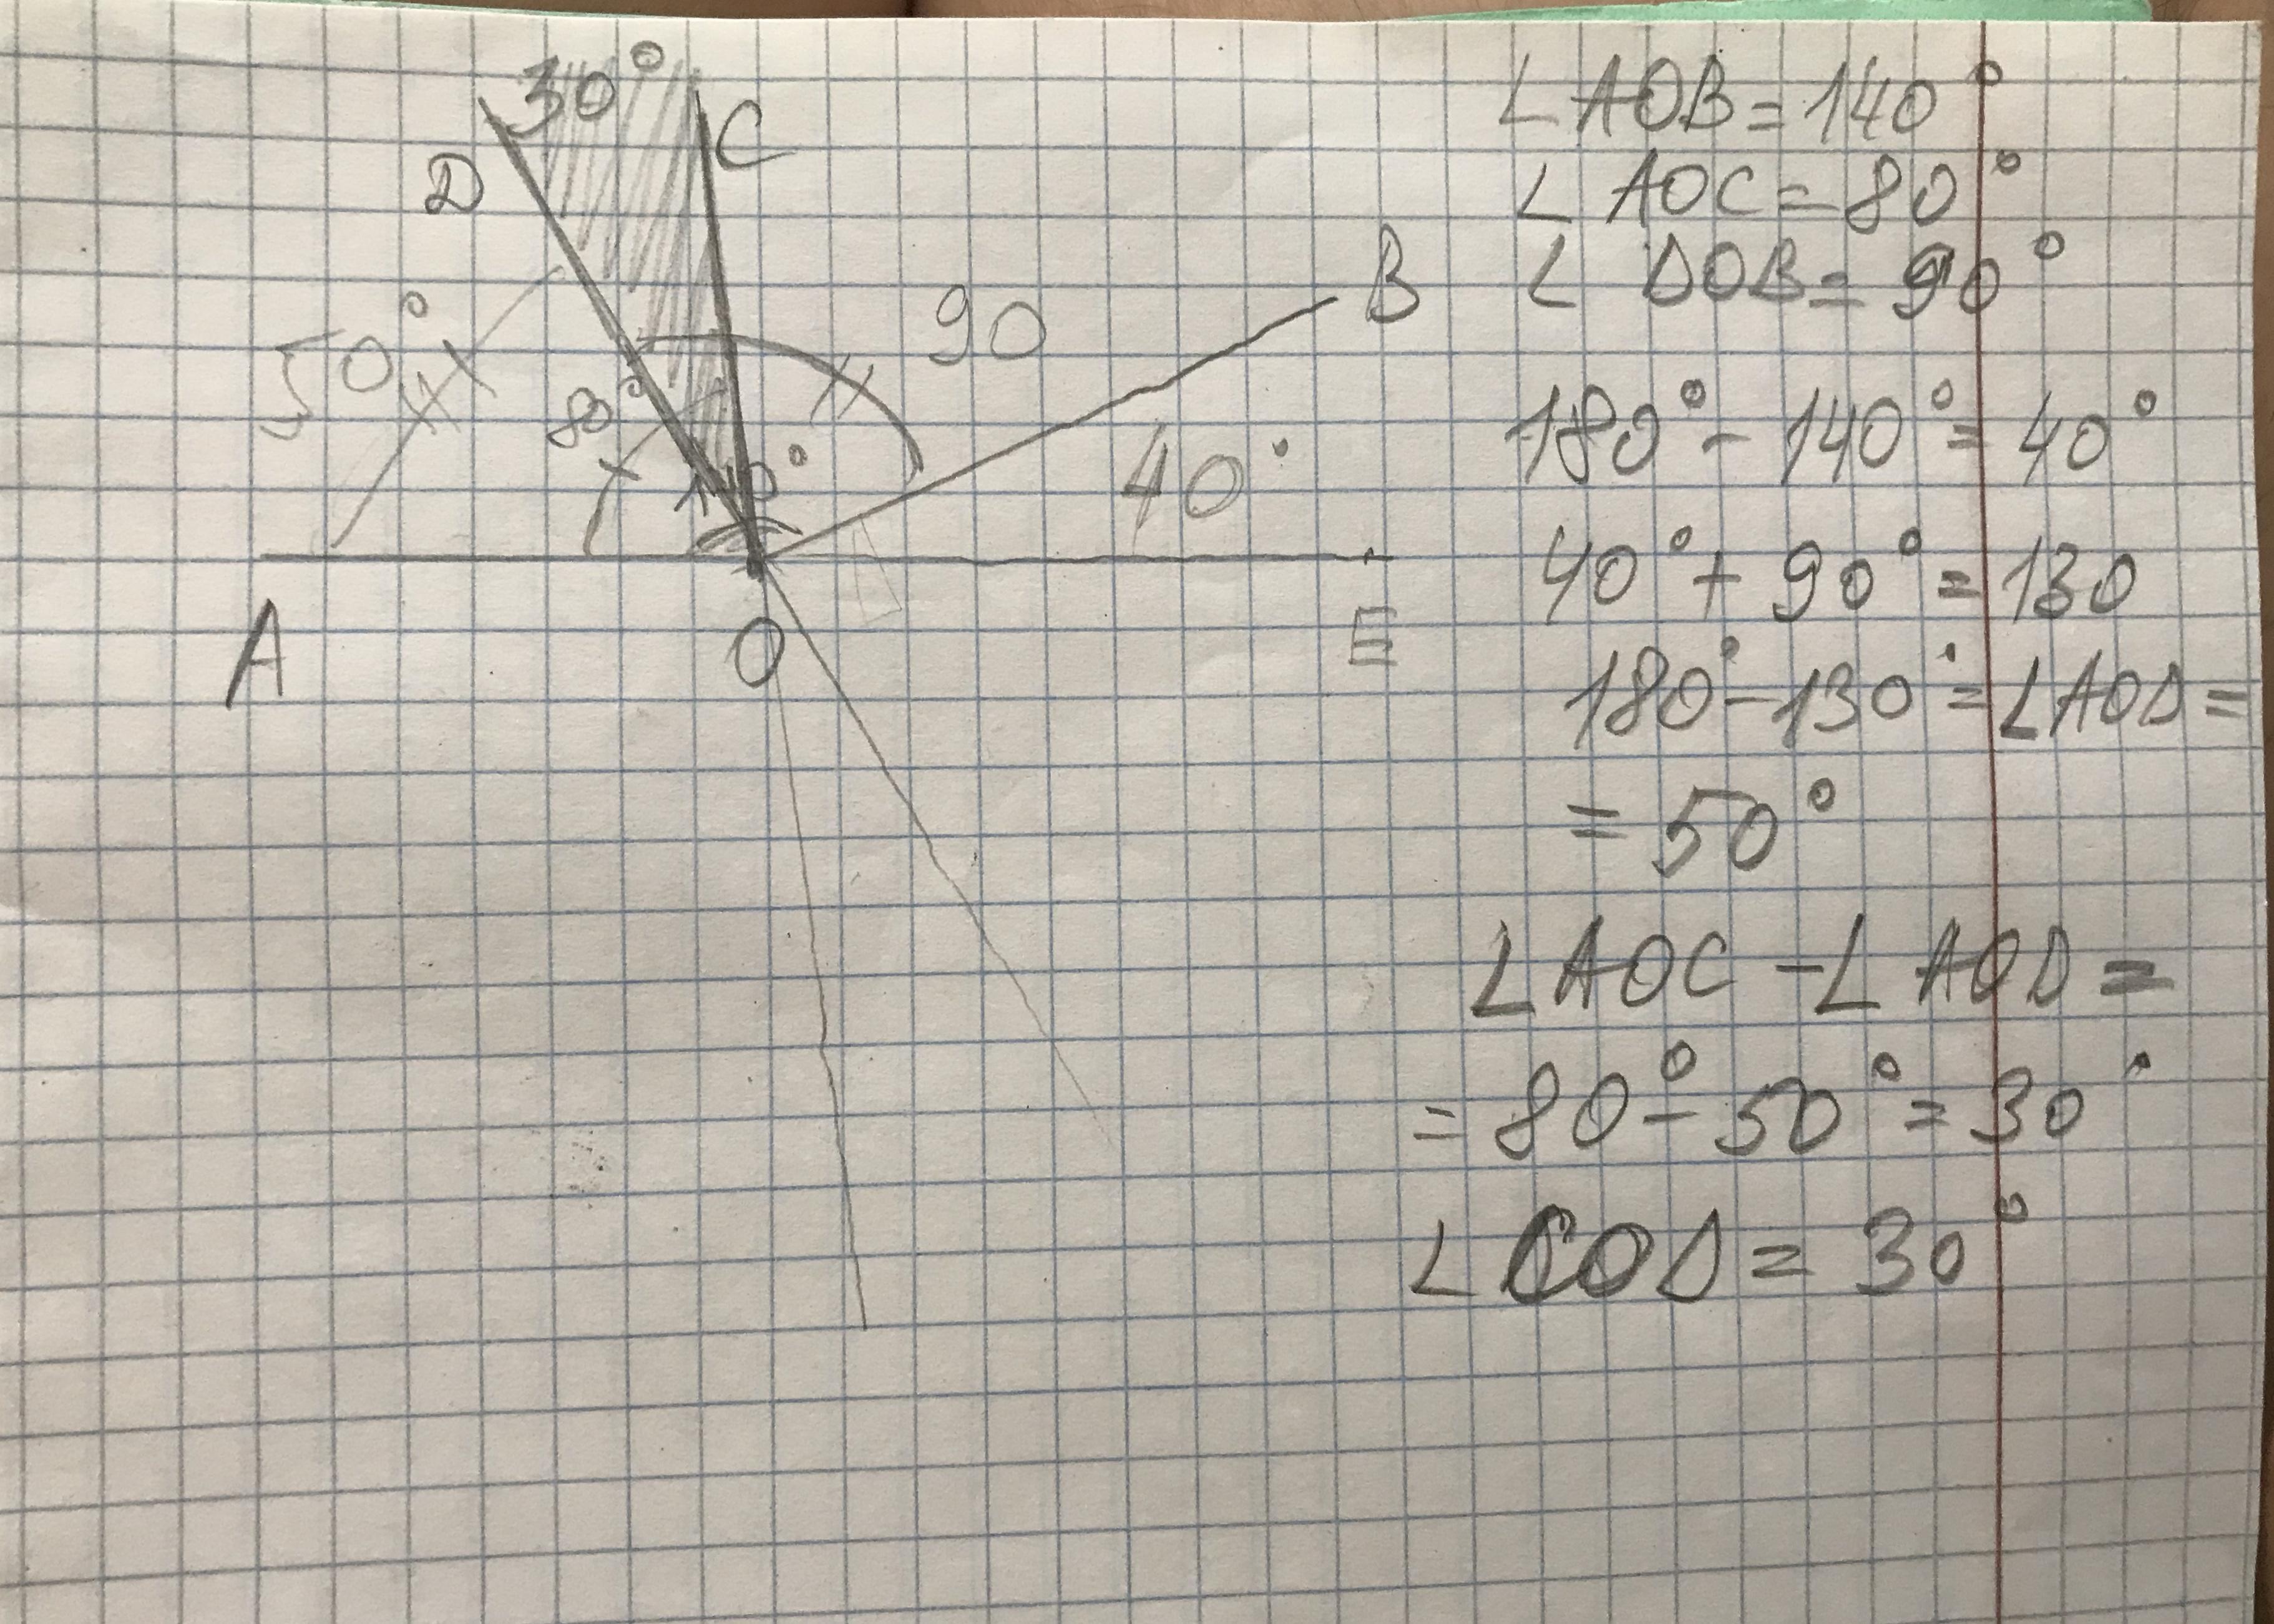 30°
D
C
50°
90
B
80°
40°
A
O
E
∠AOB = 140°
∠ AOC = 80°
∠ DOB = 90°
180° - 140° = 40°
40° + 90° = 130
180° - 130° = ∠AOD =
= 50°
∠AOC - ∠AOD =
= 80° - 50° = 30°
∠COD = 30°